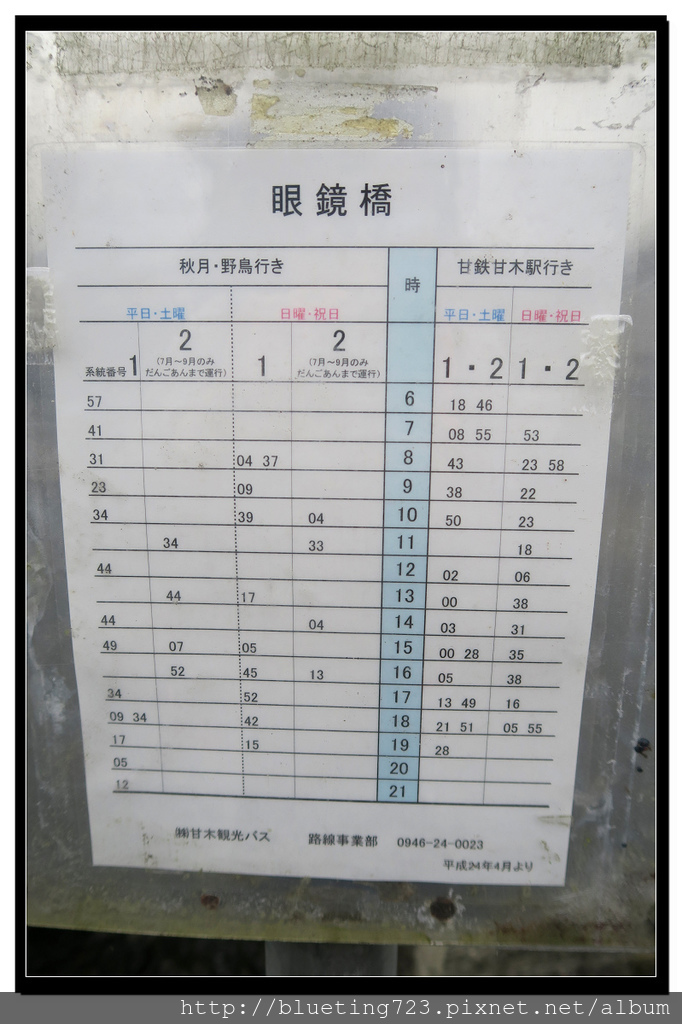 眼鏡橋
秋月・野鳥行き 時 甘鉄甘木駅行き
平日・土曜 日曜・祝日 平日・土曜 日曜・祝日
系統番号 1 2 1 2 1・2 1・2
(7月～9月のみ (7月～9月のみ
だんごあんまで運行) だんごあんまで運行)
57 6 18 46
41 7 08 55 53
31 04 37 8 43 23 58
23 09 9 38 22
34 39 04 10 50 23
34 33 11 18
44 12 02 06
44 17 13 00 38
44 04 14 03 31
49 07 05 15 00 28 35
52 45 13 16 05 38
34 52 17 13 49 16
09 34 42 18 21 51 05 55
17 15 19 28
05 20
12 21
㈱甘木観光バス 路線事業部 0946-24-0023
平成24年4月より
http://blueting723.pixnet.net/album